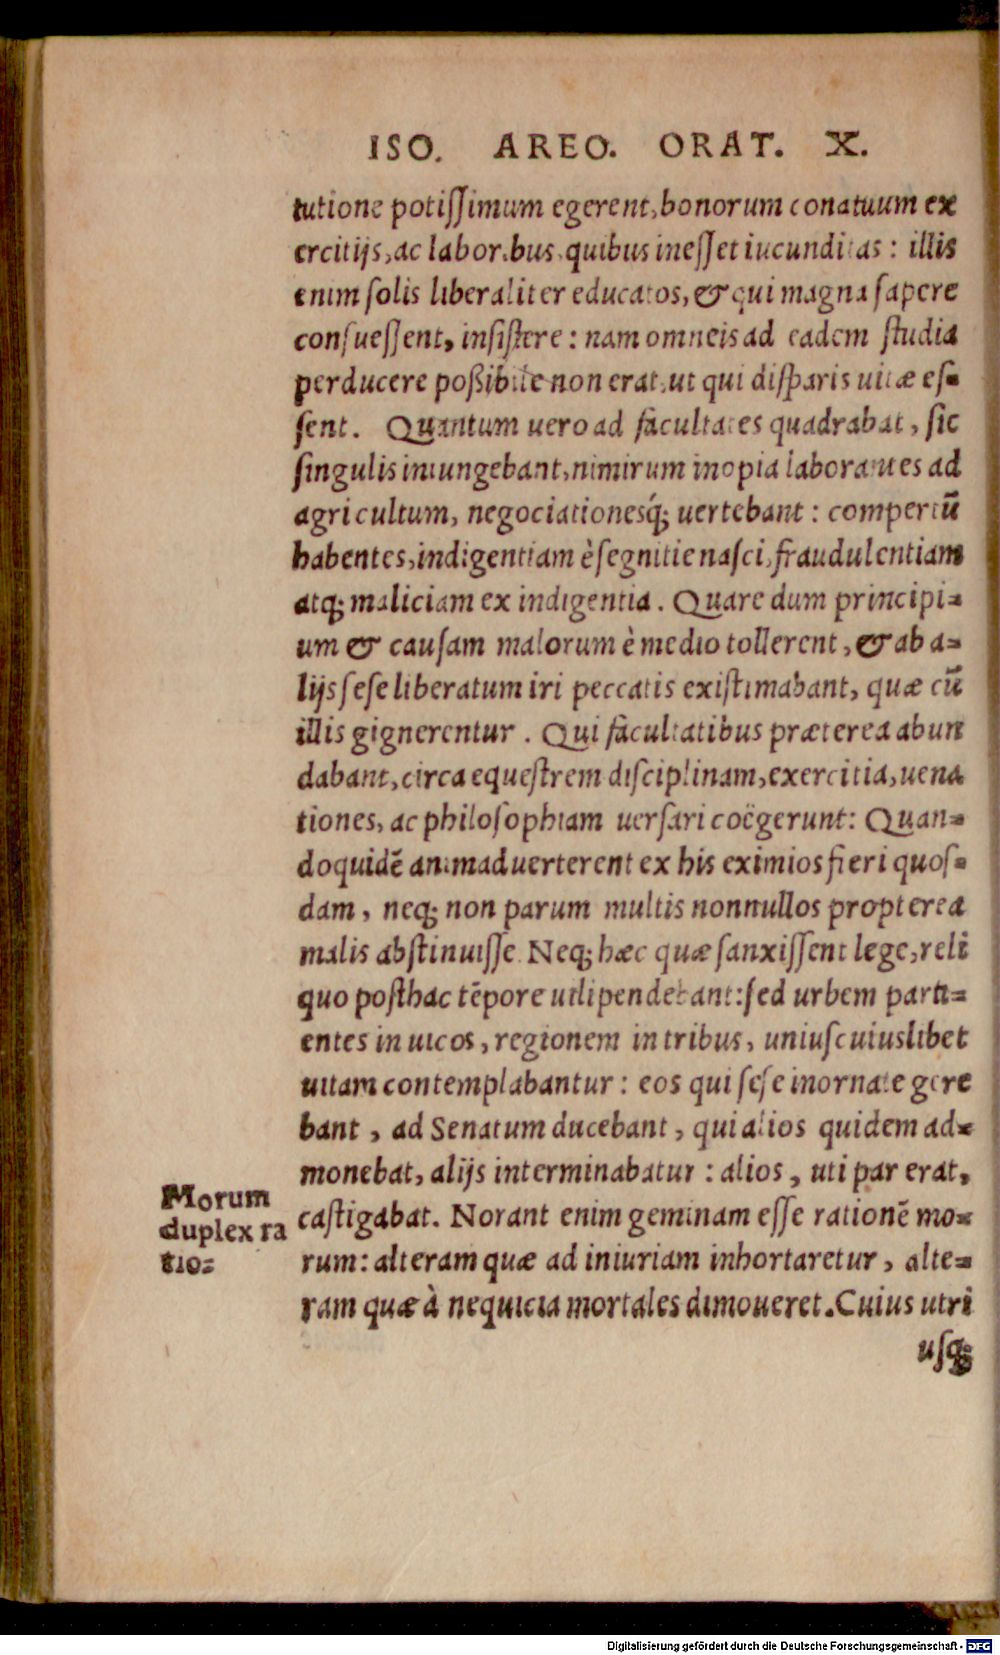 ISO. AREO. ORAT. X.
tutione potiſſimum egerent, bonorum conatuum ex
ercitijs, ac laboribus, quibus ineſſet iucunditas : illis
enim ſolis liberaliter educatos, & qui magna ſapere
conſueſſent, inſiſtere : nam omneis ad eadem ſtudia
perducere poßibile non erat, ut qui diſparis uitæ eſ=
ſent. Quantum uero ad facultates quadrabat, ſic
ſingulis iniungebant, nimirum inopia laborantes ad
agricultum, negociationesq́; uertebant : compertū
habentes, indigentiam è ſegnitie naſci, fraudulentiam
atq; maliciam ex indigentia. Quare dum principi=
um & cauſam malorum è medio tollerent, & ab a=
lijs ſeſe liberatum iri peccatis exiſtimabant, quæ cū
illis gignerentur. Qui facultatibus præterea abun
dabant, circa equeſtrem diſciplinam, exercitia, uena
tiones, ac philoſophiam uerſari coëgerunt: Quan=
doquidē animaduerterent ex his eximios fieri quoſ=
dam, neq; non parum multis nonnullos propterea
malis abſtinuiſſe. Neq; hæc quæ ſanxiſſent lege, reli
quo poſthac tēpore uilipendebant: ſed urbem parti=
entes in uicos, regionem in tribus, uniuſcuiuslibet
uitam contemplabantur : eos qui ſeſe inornate gere
bant, ad Senatum ducebant, qui alios quidem ad=
monebat, alijs interminabatur : alios, uti par erat,
caſtigabat. Norant enim geminam eſſe rationē mo=
rum: alteram quæ ad iniuriam inhortaretur, alte=
ram quæ à nequicia mortales dimoueret. Cuius utri
uſq;
Morum
duplex ra
tio=
Digitalisierung gefördert durch die Deutsche Forschungsgemeinschaft - DFG